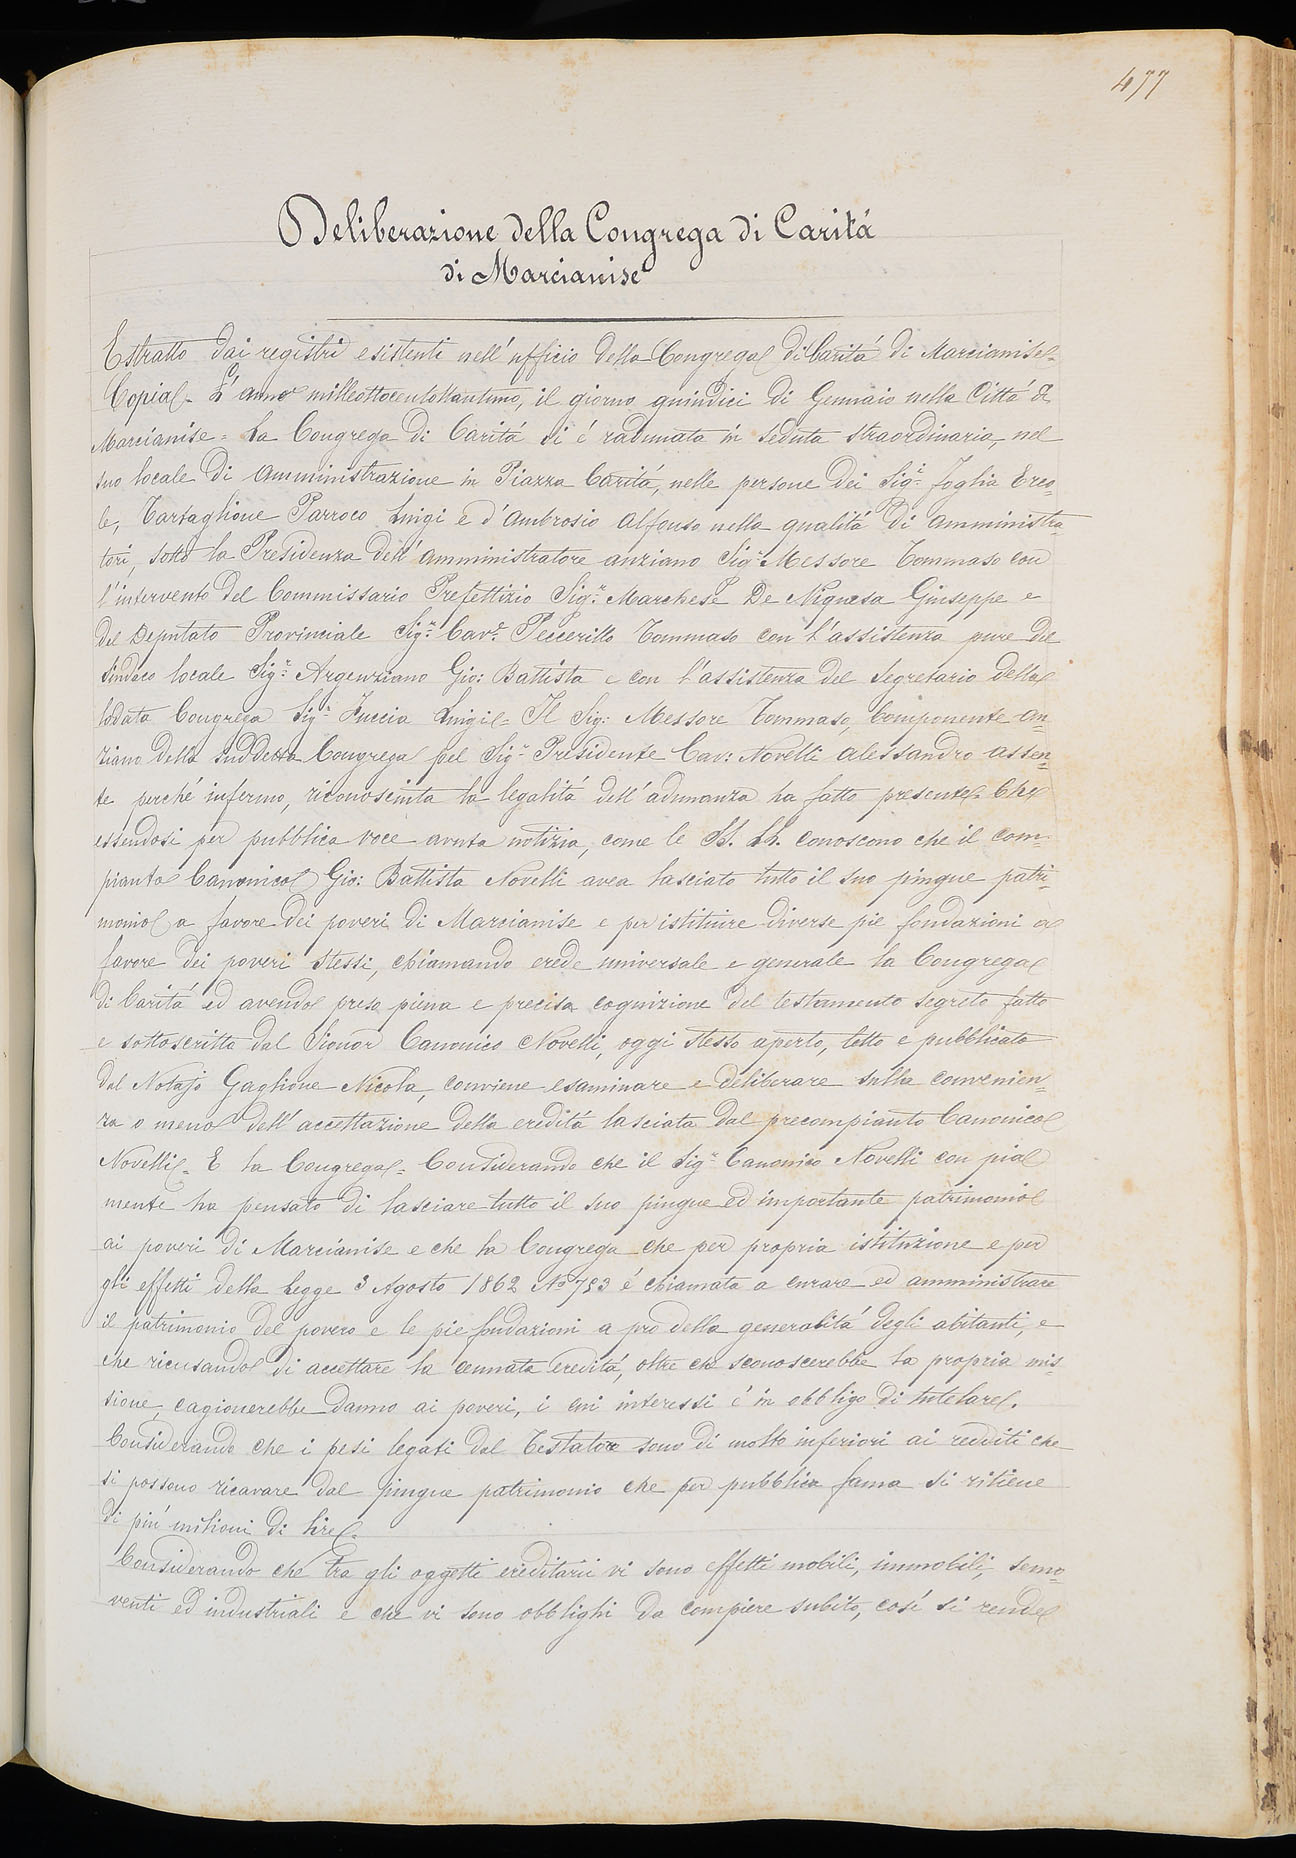 477
Deliberazione della Congrega di Carità
di Marcianise
Estratto dai registri esistenti nell'ufficio della Congrega di Carità di Marcianise=
Copia= L'anno milleottocentottantuno, il giorno quindici di Gennaio nella Città di
Marcianise= La Congrega di Carità si é radunata in seduta straordinaria, nel
suo locale di Amministrazione in Piazza Carità, nelle persone dei Sigi. Foglia Erco=
le, Tartaglione Parroco Luigi e d'Ambrosio Alfonso nella qualità di Amministra=
tori, sotto la Presidenza dell'Amministratore anziano Sigr. Messore Tommaso con
l'intervento del Commissario Prefettizio Sigr. Marchese De Niguesa Giuseppe e
del Deputato Provinciale Sigr. Cavr. Peccerillo Tommaso con l'assistenza pure del
Sindaco locale Sigr. Argenziano Gio: Battista e con l'assistenza del Segretario della
lodata Congrega Sigr. Zuccia Luigi= Il Sig: Messore Tommaso, Componente an=
ziano della suddetta Congrega pel Sigr. Presidente Cav: Novelli Alessandro assen=
te perché infermo, riconosciuta la legalità dell'adunanza ha fatto presente= Che
essendosi per pubblica voce avuta notizia, come le SS. LL. conoscono che il com=
pianto Canonico Gio: Battista Novelli avea lasciato tutto il suo pingue patri=
monio a favore dei poveri di Marcianise e per istituire diverse pie fondazioni a
favore dei poveri stessi, chiamando erede universale e generale la Congrega
di Carità ed avendo preso piena e precisa cognizione del testamento segreto fatto
e sottoscritto dal Signor Canonico Novelli, oggi stesso aperto, letto e pubblicato
dal Notajo Gaglione Nicola, conviene esaminare e deliberare sulla convenien=
za o meno dell'accettazione della eredità lasciata dal precompianto Canonico
Novelli= E la Congrega= Considerando che il Sigr. Canonico Novelli con pia
mente ha pensato di lasciare tutto il suo pingue ed importante patrimonio
ai poveri di Marcianise e che la Congrega che per propria istituzione e per
gli effetti della Legge 3 Agosto 1862 No 753 é chiamata a curare ed amministrare
il patrimonio del povero e le pie fondazioni a pro della generalità degli abitanti, e
che ricusando di accettare la cennata eredità, oltre che sconoscerebbe la propria mis=
sione, cagionerebbe danno ai poveri, i cui interessi é in obbligo di tutelare.
Considerando che i pesi legati dal Testatore sono di molto inferiori ai redditi che
si possono ricavare dal pingue patrimonio che per pubblica fama si ritiene
di piú milioni di lire=
Considerando che tra gli oggetti ereditarii vi sono effetti mobili, immobili, semo=
venti ed industriali e che vi sono obblighi da compiere subito, cosí si rende